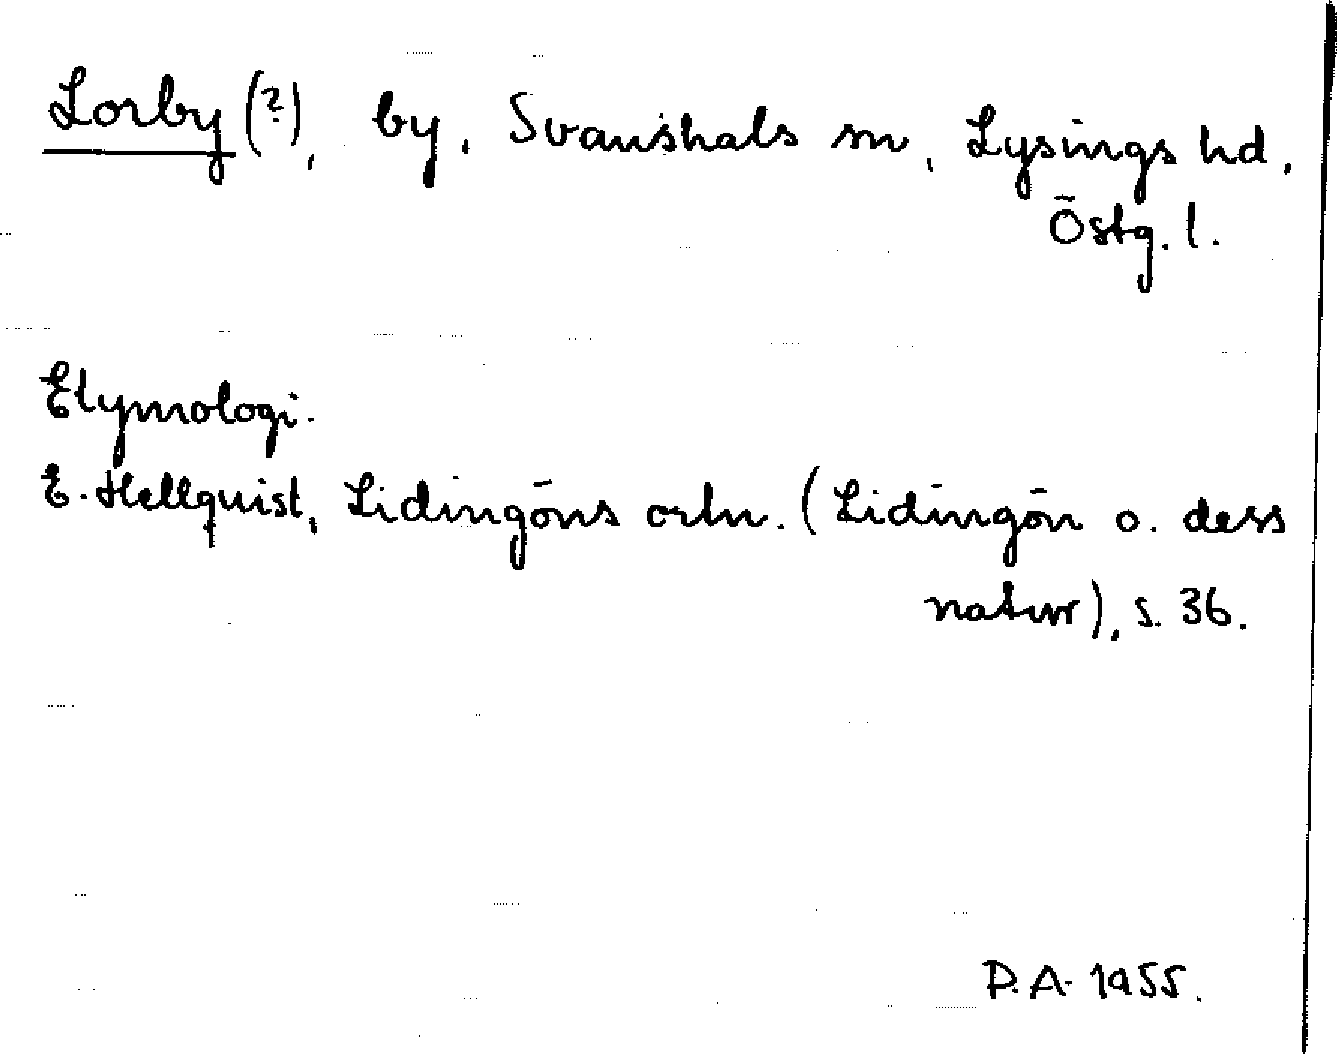 Lorby (?), by, Svanshals sn, Lysings hd,
Östg. l.
Etymologi.
E. Hellquist, Lidingöns ortn. (Lidingön o. dess
natur), s. 36.
P.A. 1955.